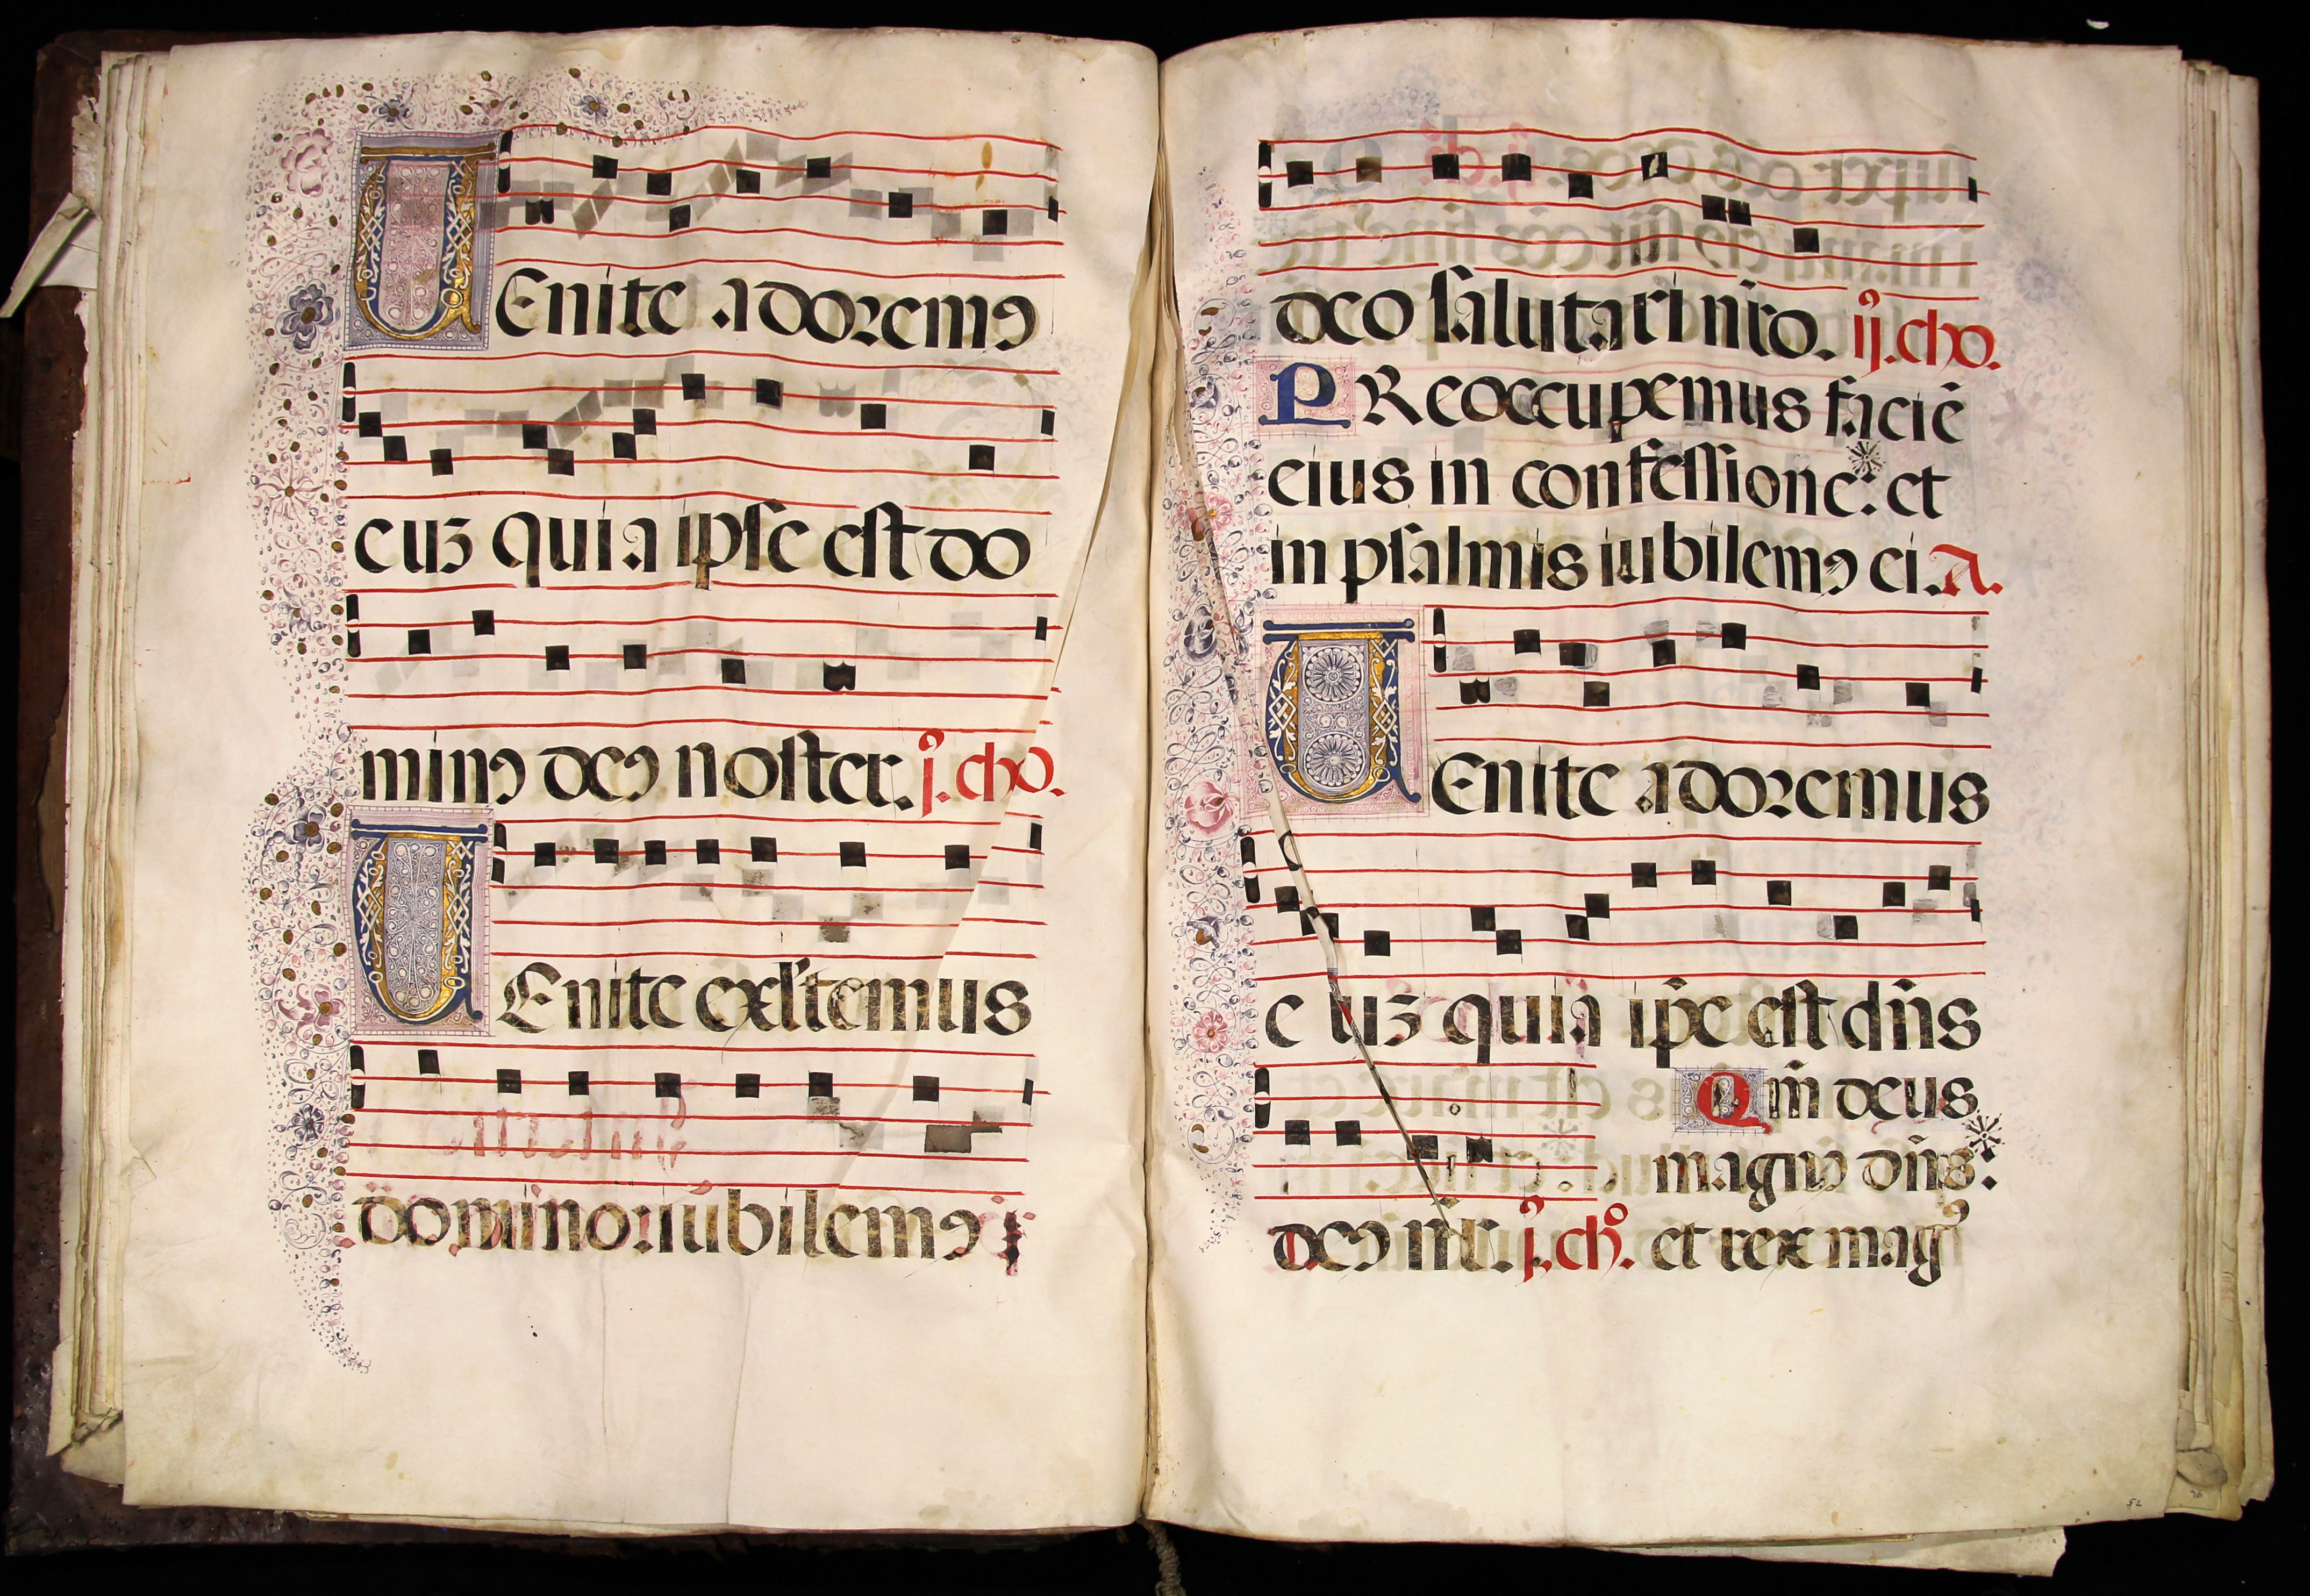 UEnite adoremꝰ
euʒ quia ipse est do
minꝰ deꝰ noster. j.º cho.
UEnite exl'temus
domino: iubilemꝰ
deo salutari nr̄o. ij.º cho.
PReoccupemus faciē
eius in confessione: et
in psalmis iubilemꝰ ei. A.
UEnite adoremus
euʒ quia ip̄e est dn̄s
Qm̄ deus
magnꝰ dn̄s:
deꝰ nr̄. j.º chº. et rex magꝰ
52